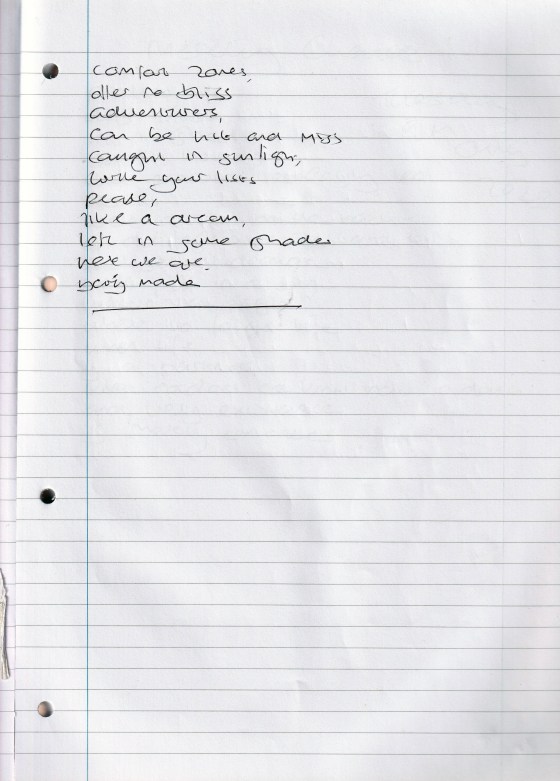 comfort zones,
offer no bliss
adventurers,
can be hit and miss
caught in sunlight,
write your lists
please,
like a dream,
left in some shade
here we are.
being made